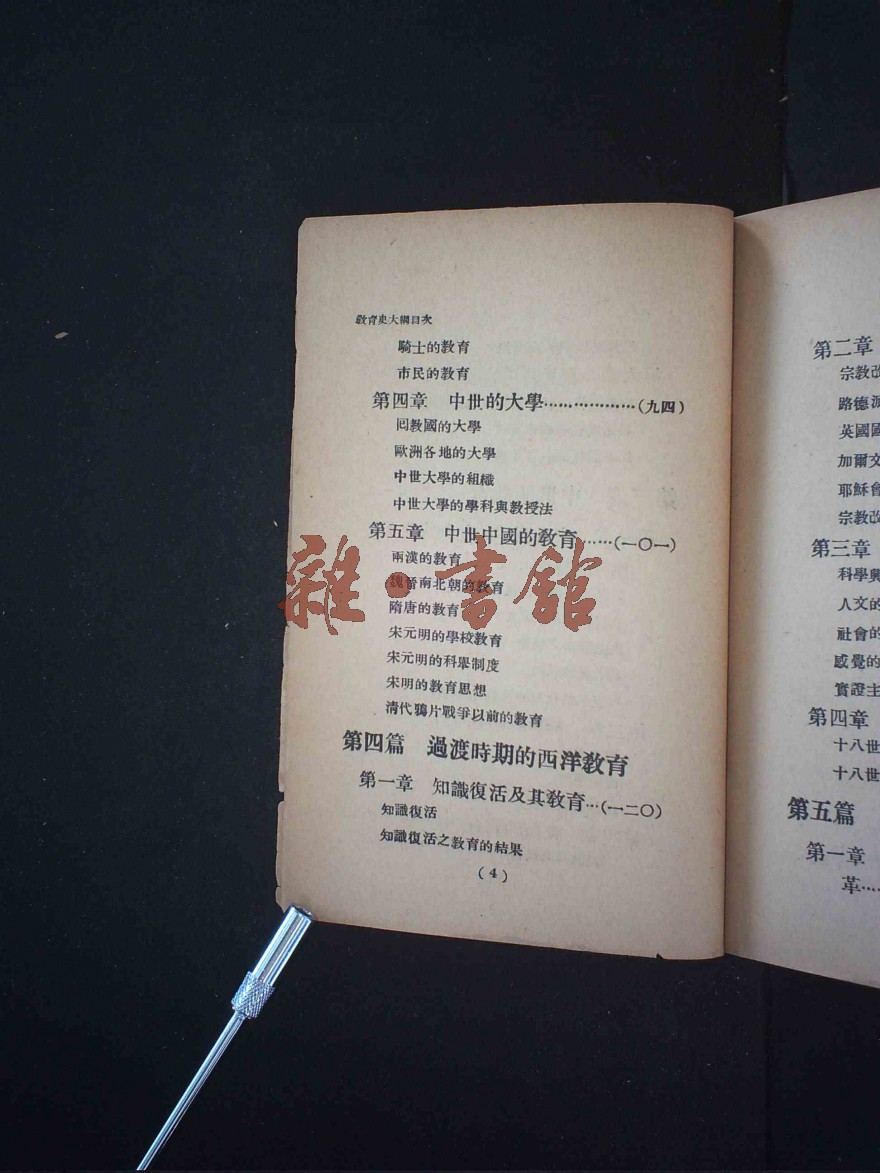 教育史大綱目次
騎士的教育
市民的教育
第四章　中世的大學………………(九四)
囘教國的大學
歐洲各地的大學
中世大學的組織
中世大學的學科與教授法
第五章　中世中國的教育……(一〇一)
兩漢的教育
魏晉南北朝的教育
隋唐的教育
宋元明的學校教育
宋元明的科舉制度
宋明的教育思想
清代鴉片戰爭以前的教育
第四篇　過渡時期的西洋教育
第一章　知識復活及其教育…(一二〇)
知識復活
知識復活之教育的結果
(4)
第二章
宗教改
路德派
英國國
加爾文
耶穌會
宗教改
第三章
科學與
人文的
社會的
感覺的
實證主
第四章
十八世
十八世
第五篇
第一章
革…
雜·書館